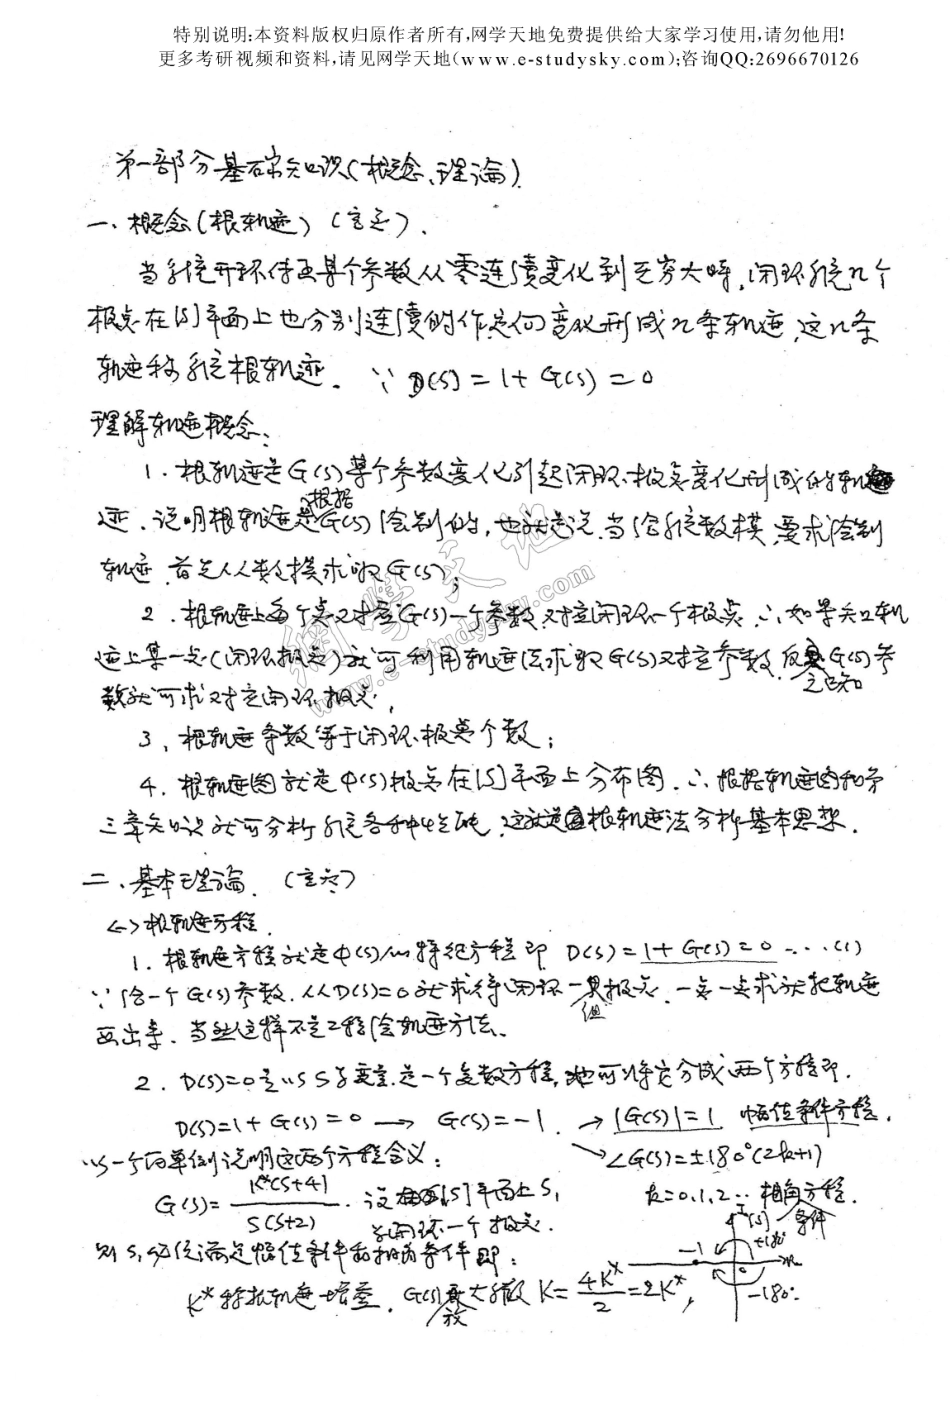 特别说明:本资料版权归原作者所有,网学天地免费提供给大家学习使用,请勿他用!
更多考研视频和资料,请见网学天地(www.e-studysky.com);咨询QQ:2696670126
第一部分基础知识(概念、理论)
一、概念(根轨迹)(定义).
当系统开环传函某个参数从零连续变化到无穷大时,闭环系统n个
极点在[S]平面上也分别连续的作定向变化形成n条轨迹,这n条
轨迹称系统根轨迹. ∵ D(S)=1+G(S)=0
理解轨迹概念:
1.根轨迹是G(S)某个参数变化引起闭环极点变化形成的轨
迹.说明根轨迹是根据G(S)绘制的,也就是说当给系统数模,要求绘制
轨迹,首先从数模求取G(S);
2.根轨迹上每个点对应G(S)一个参数,对应闭环一个极点,∴如果知轨
迹上某一点(闭环极点)就可利用轨迹法求取G(S)对应参数,反之已知G(S)参
数就可求对应闭环极点;
3、根轨迹条数等于闭环极点个数;
4.根轨迹图就是Φ(S)极点在[S]平面上分布图.∴根据轨迹图和第
三章知识就可分析系统各种性能,这就是根轨迹法分析基本思想.
二、基本理论.(定义)
<一>根轨迹方程.
1.根轨迹方程就是Φ(S)的特征方程即 D(S)=1+G(S)=0 ...(1)
∵给一个G(S)参数,从D(S)=0就求得闭环一组极点,一点一点求就把轨迹
画出来.当然这样不是工程绘轨迹方法.
2.D(S)=0是以S为变量,是一个复数方程,也可将它分成两个方程即.
D(S)=1+G(S)=0 → G(S)=-1. → |G(S)|=1 幅值条件方程.
↘∠G(S)=±180°(2k+1)
以一个简单例说明这两个方程含义:
G(S)=K*(S+4)/S(S+2). 设在[S]平面上S₁ k=0,1,2… 相角条件方程.
为闭环一个极点.
则S₁必须满足幅值条件和相角条件即:
[S] +180° -1 0 -180°
K*称根轨迹增益,G(S)放大系数K=4K*/2=2K*,
网学天地
www.e-studysky.com